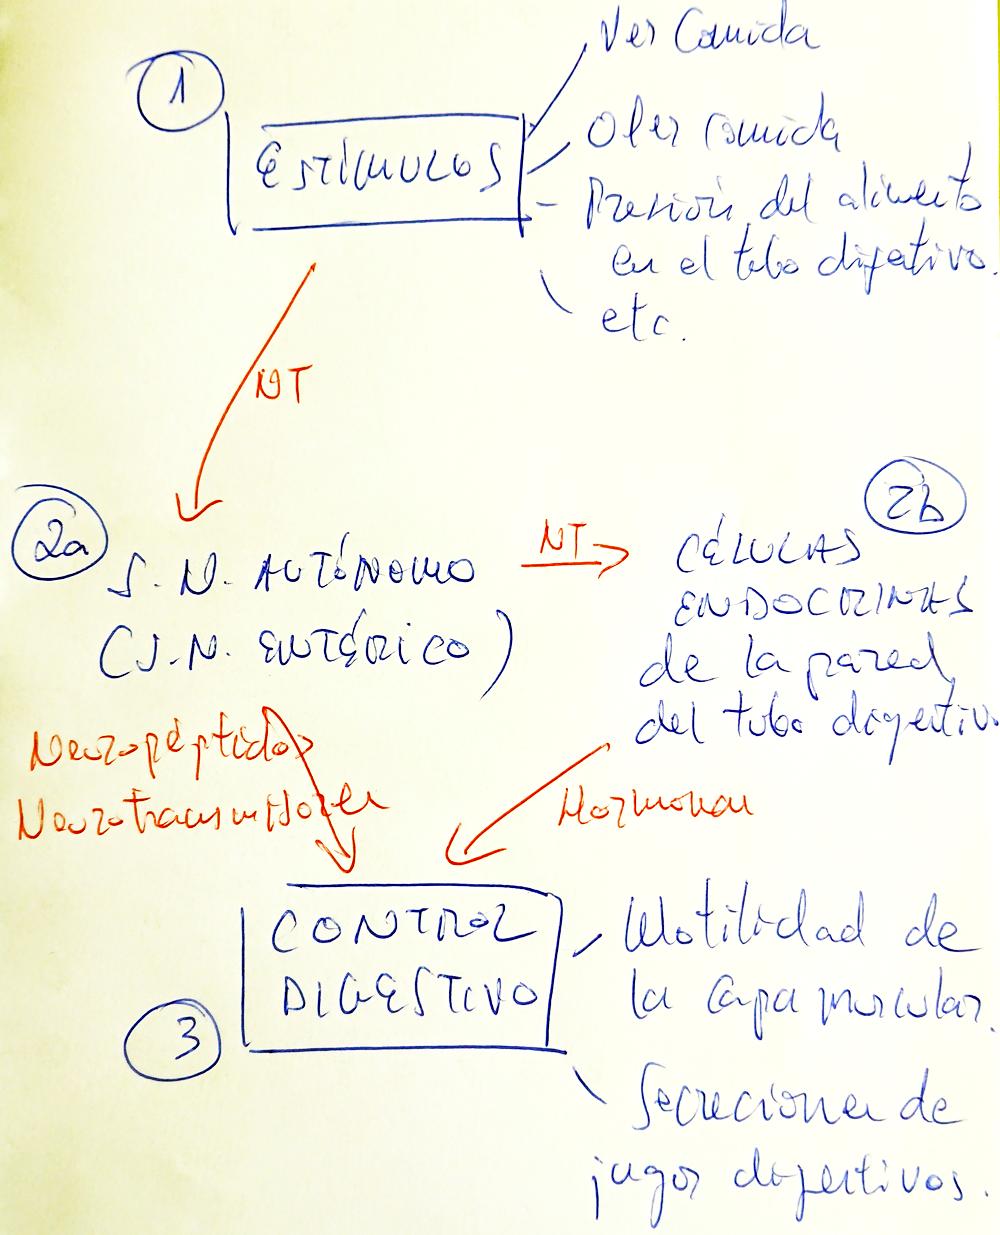 1
ESTÍMULOS
Ver Comida
Oler Comida
- Presión del alimento
en el tubo digestivo.
etc.
NT
2a
S.N. AUTÓNOMO
(S.N. ENTÉRICO)
NT
2b
CÉLULAS
ENDOCRINAS
de la pared
del tubo digestivo
Neuropéptidos
Neurotransmisores
Hormonas
CONTROL
DIGESTIVO
3
Motilidad de
la capa muscular.
Secreciones de
jugos digestivos.